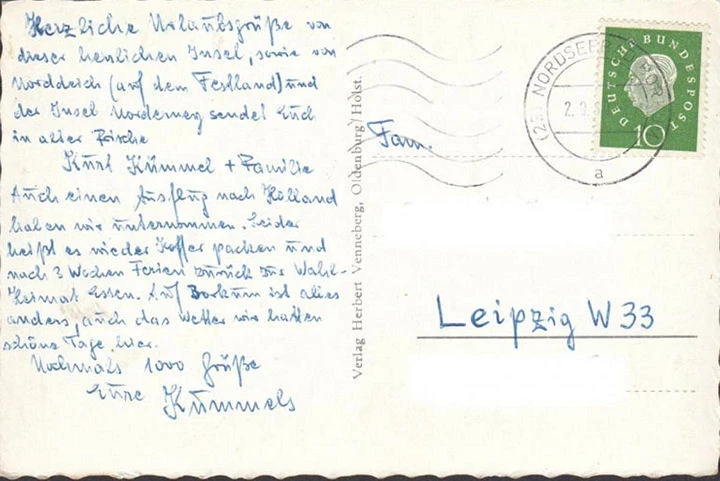 Herzliche Urlaubsgrüße von
dieser herrlichen Insel, sowie von
Norddeich (auf dem Festland) und
der Insel Norderney sendet Euch
in alter Frische
Kurt Kümmel + Familie
Auch einen Ausflug nach Holland
haben wir unternommen. Leider
heißt es wieder Koffer packen und
nach 3 Wochen Ferien zurück zur Wahl-
Heimat Essen. Auf Borkum ist alles
anders, auch das Wetter wir hatten
schöne Tage hier.
Nochmals 1000 Grüße
Eure Kümmels
Verlag Herbert Venneberg, Oldenburg/Holst.
Fam.
Leipzig W 33
NORDSEEB
2.9.
a
DEUTSCHE BUNDESPOST
10